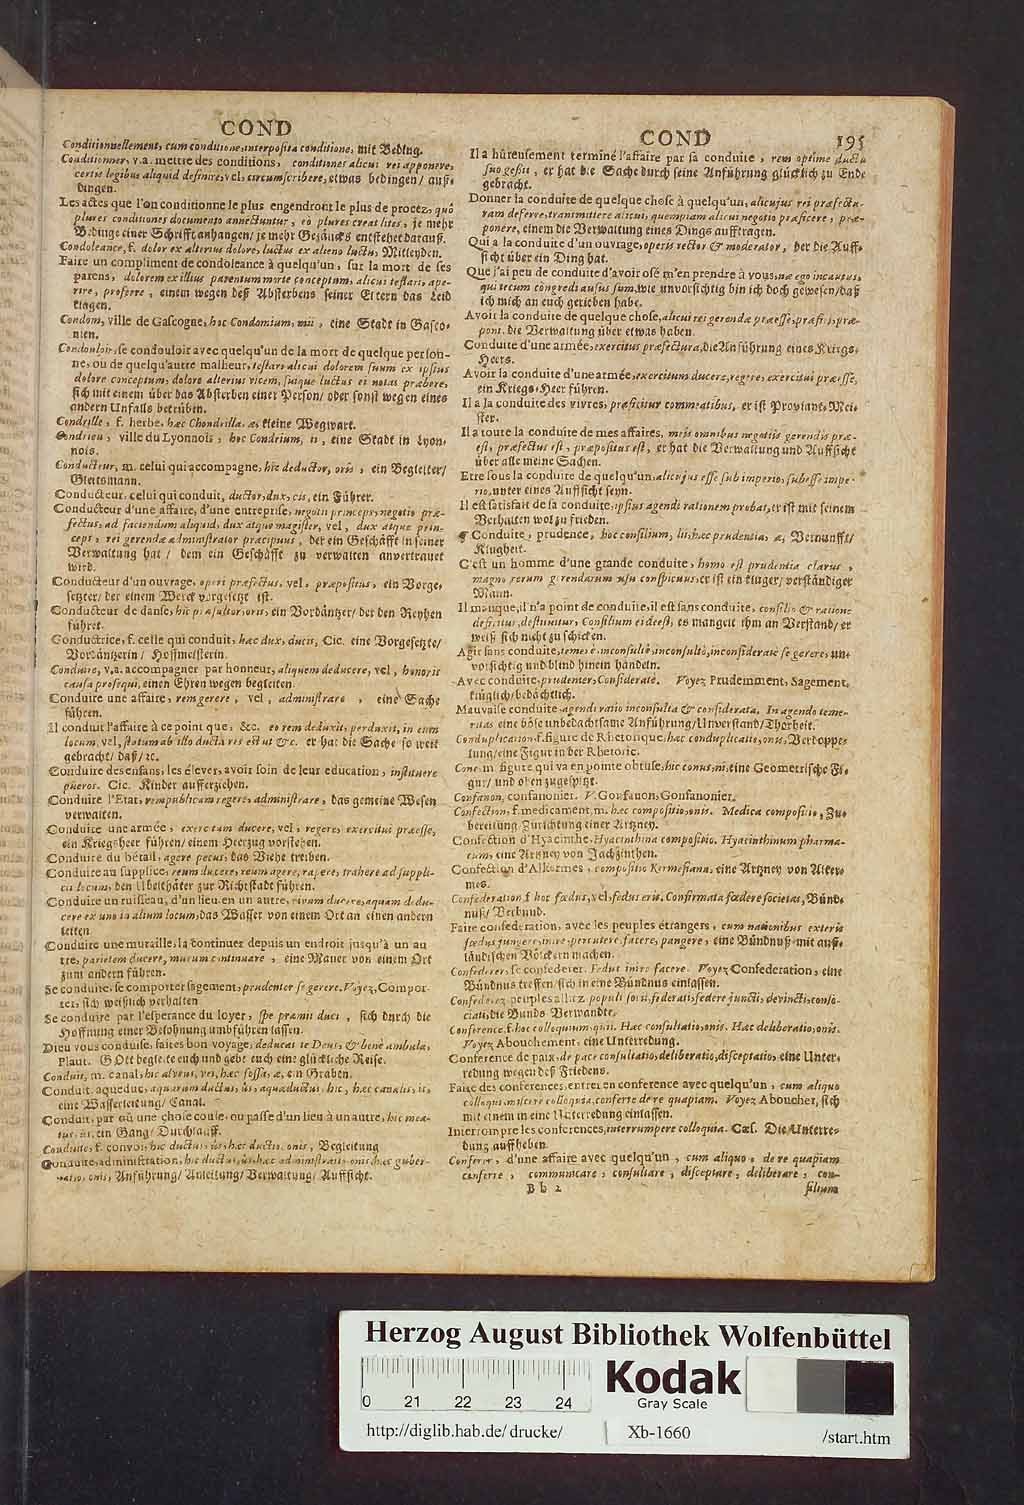 COND
Conditionnellement, cum conditione, interposita conditione, mit Beding.
Conditionner, v.a. mettre des conditions, conditiones alicui rei apponere,
certis legibus aliquid definire, vel, circumscribere, etwas bedingen/ auß-
dingen.
Les actes que l'on conditionne le plus engendront le plus de procez, quô
plures conditiones documento annectuntur, eò plures creat lites, je mehr
Bedinge einer Schrifft anhangen/ je mehr Gezäncks entstehet darauß.
Condoleance, f. dolor ex alterius dolore, luctus ex alieno luctu, Mitleyden.
Faire un compliment de condoleance à quelqu'un, sur la mort de ses
parens, dolorem ex illius parentum morte conceptum, alicui testari, ape-
rire, proferre, einem wegen deß Absterbens seiner Eltern das Leid
klagen.
Condom, ville de Gascogne, hoc Condomium, mii, eine Stadt in Gasco-
nien.
Condouloir, se condouloir avec quelqu'un de la mort de quelque person-
ne, ou de quelqu'autre malheur, testari alicui dolorem suum ex ipsius
dolore conceptum, dolore alterius vicem, suique luctus ei notas præbere,
sich mit einem über das Absterben einer Person/ oder sonst wegen eines
andern Unfalls betrüben.
Condrille, f. herbe, hæc Chondrilla, æ, kleine Wegwart.
Condrieu, ville du Lyonnois, hoc Condrium, ii, eine Stadt in Lyon-
nois.
Conducteur, m. celui qui accompagne, hic deductor, oris, ein Begleiter/
Gleitsmann.
Conducteur, celui qui conduit, ductor, dux, cis, ein Führer.
Conducteur d'une affaire, d'une entreprise, negotii princeps, negotio præ-
fectus, ad faciendum aliquid, dux atque magister, vel, dux atque prin-
ceps, rei gerendæ administrator præcipuus, der ein Geschäffte in seiner
Verwaltung hat/ dem ein Geschäffte zu verwalten anvertrauet
wird.
Conducteur d'un ouvrage, operi præfectus, vel, præpositus, ein Vorge-
setzter/ der einem Werck vorgesetzt ist.
Conducteur de danse, hic præsultor, oris, ein Vordäntzer/ der den Reyhen
führet.
Conductrice, f. celle qui conduit, hæc dux, ducis, Cic. eine Vorgesetzte/
Vordäntzerin/ Hoffmeisterin.
Conduire, v.a. accompagner par honneur, aliquem deducere, vel, honoris
causa prosequi, einen Ehren wegen begleiten.
Conduire une affaire, rem gerere, vel, administrare, eine Sache
führen.
Il conduit l'affaire à ce point que, &c. eo rem deduxit, perduxit, in eum
locum, vel, statum ab illo ducta res est ut &c. er hat die Sache so weit
gebracht/ daß/ ꝛc.
Conduire des enfans, les élever, avoir soin de leur education, instituere
pueros. Cic. Kinder aufferziehen.
Conduire l'Etat, rempublicam regere, administrare, das gemeine Wesen
verwalten.
Conduire une armée, exercitum ducere, vel, regere, exercitui præesse,
ein Kriegsheer führen/ einem Heerzug vorstehen.
Conduire du bétail, agere pecus, das Viehe treiben.
Conduire au supplice, reum ducere, reum agere, rapere, trahere ad suppli-
cii locum, den Übelthäter zur Richtstadt führen.
Conduire un ruisseau, d'un lieu en un autre, rivum ducere, aquam dedu-
cere ex uno in alium locum, das Wasser von einem Ort an einen andern
leiten.
Conduire une muraille, la continuer depuis un endroit jusqu'à un au
tre, parietem ducere, murum continuare, eine Mauer von einem Ort
zum andern führen.
Se conduire, se comporter sagement, prudenter se gerere. Voyez, Compor-
ter, sich weißlich verhalten
Se conduire par l'esperance du loyer, spe præmii duci, sich durch die
Hoffnung einer Belohnung umbführen lassen.
Dieu vous conduise, faites bon voyage, deducat te Deus, & bene ambula,
Plaut. GOtt begleite euch und gebe euch eine glückliche Reise.
Conduit, m. canal, hic alveus, vei, hæc fossa, æ, ein Graben.
Conduit, aqueduc, aquarum ductus, ûs, aquæductus, hic, hæc canalis, is,
eine Wasserleitung/ Canal.
Conduit, par où une chose coule, ou passe d'un lieu à un autre, hic mea-
tus, ûs, ein Gang/ Durchlauff.
Conduite, f. convoi, hic ductus, ûs, hæc ductio, onis, Begleitung
Conduite, administration, hic ductus, ûs, hæc administratio, onis, hæc guber-
natio, onis, Anführung/ Anleitung/ Verwaltung/ Auffsicht.
COND 195
Il a hûreusement terminé l'affaire par sa conduite, rem optime ductu
suo gessit, er hat die Sache durch seine Anführung glücklich zu Ende
gebracht.
Donner la conduite de quelque chose à quelqu'un, alicujus rei præfectu-
ram deferre, transmittere alicui, quempiam alicui negotio præficere, præ-
ponere, einem die Verwaltung eines Dings aufftragen.
Qui a la conduite d'un ouvrage, operis rector & moderator, der die Auff-
sicht über ein Ding hat.
Que j'ai peu de conduite d'avoir osé m'en prendre à vous, næ ego incautus,
qui tecum congredi ausus sum, wie unvorsichtig bin ich doch gewesen/ daß
ich mich an euch gerieben habe.
Avoir la conduite de quelque chose, alicui rei gerendæ præesse, præfici, præ-
poni, die Verwaltung über etwas haben.
Conduite d'une armée, exercitus præfectura, die Anführung eines Kriegs-
Heers.
Avoir la conduite d'une armée, exercitum ducere, regere, exercitui præesse,
ein Kriegs-Heer führen.
Il a la conduite des vivres, præficitur commeatibus, er ist Proviant-Mei-
ster.
Il a toute la conduite de mes affaires, meis omnibus negotiis gerendis præ-
est, præfectus est, præpositus est, er hat die Verwaltung und Auffsicht
über alle meine Sachen.
Etre sous la conduite de quelqu'un, alicujus esse sub imperio, subesse impe-
rio, unter eines Auffsicht seyn.
Il est satisfait de sa conduite, ipsius agendi rationem probat, er ist mit seinem
Verhalten wol zu frieden.
¶ Conduite, prudence, hoc consilium, lii, hæc prudentia, æ, Vernunfft/
Klugheit.
C'est un homme d'une grande conduite, homo est prudentia clarus,
magno rerum gerendarum usu conspicuus, er ist ein kluger/ verständiger
Mann.
Il manque, il n'a point de conduite, il est sans conduite, consilio & ratione
deficitur, destituitur, Consilium ei deest, es mangelt ihm an Verstand/ er
weiß sich nicht zu schicken.
Agir sans conduite, temerè, inconsultò, inconsultò, inconsiderate se gerere, un-
vorsichtig und blind hinein handeln.
Avec conduite, prudenter, Considerate. Voyez Prudemment, Sagement,
klüglich/ bedächtlich.
Mauvaise conduite, agendi ratio inconsulta & considerata. In agendo teme-
ritas, eine böse unbedachtsame Anführung/ Unverstand/ Thorheit.
Conduplication, f. figure de Rhetorique, hæc conduplicatio, onis, Verdoppe-
lung/ eine Figur in der Rhetoric.
Cone, m. figure qui va en pointe obtuse, hic conus, ni, eine Geometrische Fi-
gur/ und oben zugespitzt.
Confanon, confanonier. V. Gonfanon, Gonfanonier.
Confection, f. medicament, m. hæc compositio, onis. Medica compositio, Zu-
bereitung/ Zurichtung einer Artzney.
Confection d'Hyacinthe, Hyacinthina compositio. Hyacinthinum pharma-
cum, eine Artzney von Jachzinthen.
Confection d'Alkermes, compositio Kermesiana, eine Artzney von Alker-
mes.
Confederation f. hoc fœdus, vel, fedus eris. Confirmata fœdere societas, Bünd-
nuß/ Verbund.
Faire confederation, avec les peuples étrangers, cum nationibus exteris
fœdus jungere, inire, percutere, facere, pangere, eine Bündnuß mit auß-
ländischen Völckern machen.
Confederer, se confederer. Fedus inire facere. Voyez Confederation, eine
Bündnus treffen/ sich in eine Bündnus einlassen.
Confederez peuples alliez, populi socii, fœderati, fœdere juncti, devincti, conso-
ciati, die Bunds-Verwandte.
Conference, f. hoc colloquium, quii. Hæc consultatio, onis. Hæc deliberatio, onis.
Voyez Abouchement, eine Unterredung.
Conference de paix, de pace consultatio, deliberatio, disceptatio, eine Unter-
redung wegen deß Friedens.
Faire des conferences, entrer en conference avec quelqu'un, cum aliquo
colloqui, miscere colloquia, conferre de re quapiam. Voyez Aboucher, sich
mit einem in eine Unterredung einlassen.
Interrompre les conferences, interrumpere colloquia. Cæs. Die Unterre-
dung auffheben.
Conferer, d'une affaire avec quelqu'un, cum aliquo, de re quapiam
conferre, communicare, consultare, disceptare, deliberare, con-
Bb 2 silium
Herzog August Bibliothek Wolfenbüttel
0 21 22 23 24
Kodak
Gray Scale
http://diglib.hab.de/drucke/ Xb-1660 /start.htm